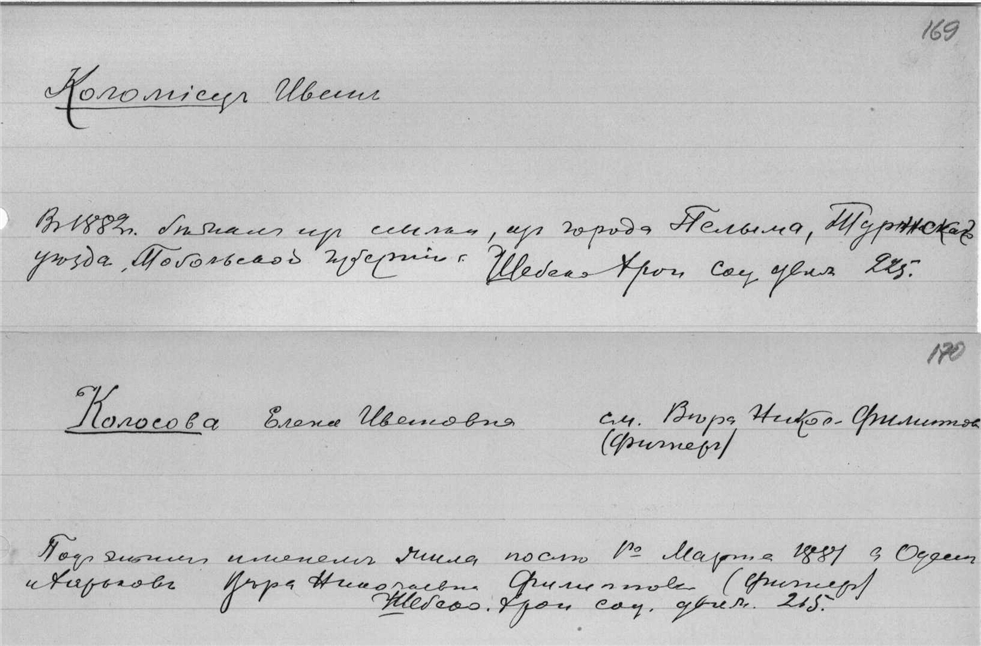 169
Коломіецъ Иванъ
Въ 1882г. бѣжалъ изъ ссылки, изъ города Пелыма, Туринскаго
уѣзда, Тобольской губерніи. Шебеко Хрон соц движ 225.
170
Колосова Елена Ивановна см. Вѣра Никол. Филиппова
(Фигнеръ)
Подъ этимъ именемъ жила послѣ 1го Марта 1881 в Одессѣ
и Харьковѣ Вѣра Николаевна Филиппова (Фигнеръ)
Шебеко. Хрон соц. движ. 215.